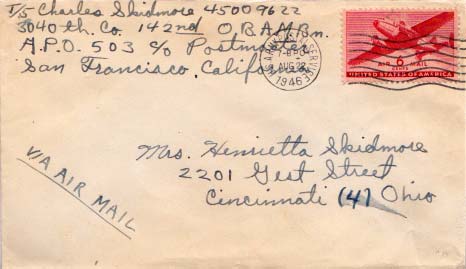 T/5 Charles Skidmore 45009622
3040th Co. 142nd O.B.A.M.Bn.
A.P.O. 503 c/o Postmaster
San Francisco, California
AUG 22
1946
SERVICE
6
CENTS
AIR MAIL
UNITED STATES OF AMERICA
Mrs. Henrietta Skidmore
2201 Gest Street
Cincinnati (4) Ohio
VIA AIR MAIL